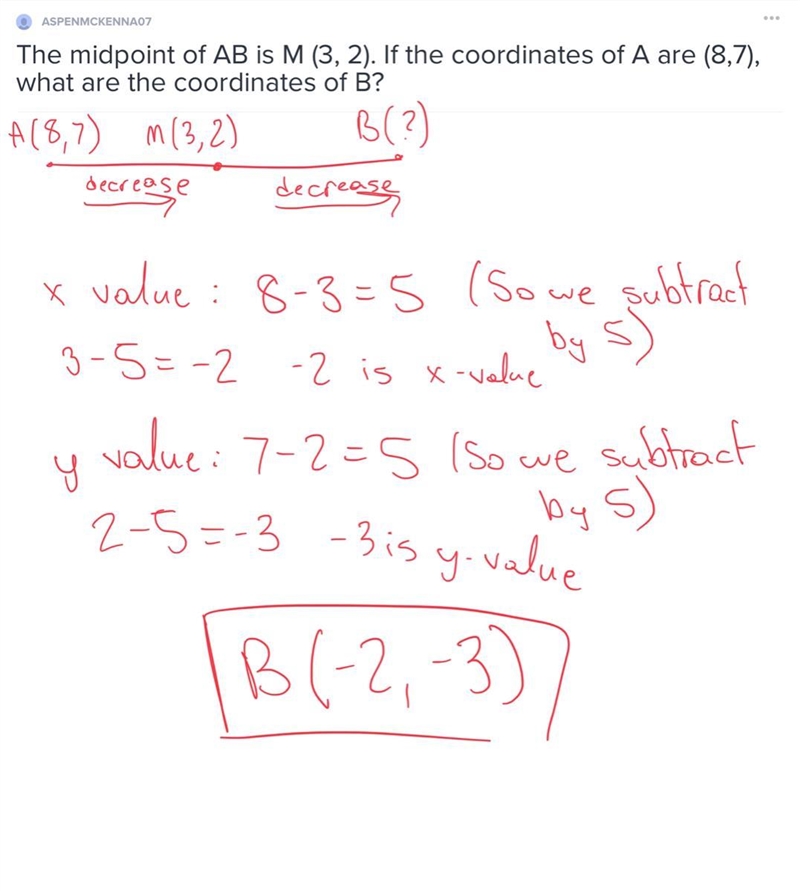 ASPENMCKENNA07
The midpoint of AB is M (3, 2). If the coordinates of A are (8,7),
what are the coordinates of B?
A(8,7) M(3,2) B(?)
decrease decrease
x value: 8-3=5 (So we subtract
by 5)
3-5=-2 -2 is x-value
y value: 7-2=5 (So we subtract
by 5)
2-5=-3 -3 is y-value
B(-2,-3)